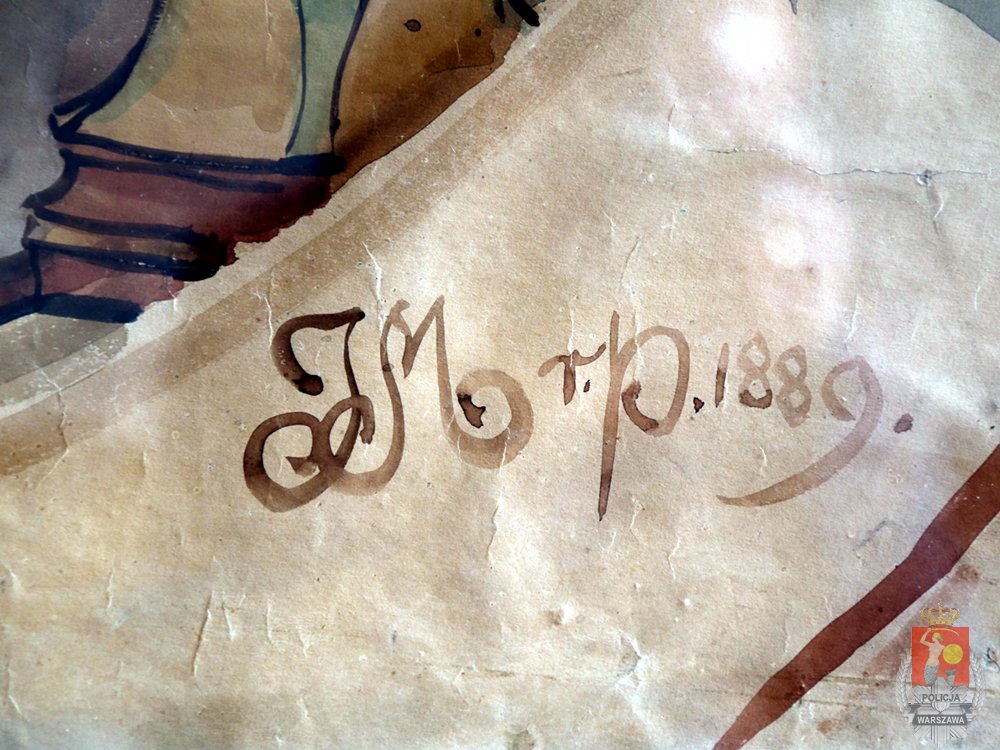 JM r.p. 1889.
POLICJA
WARSZAWA